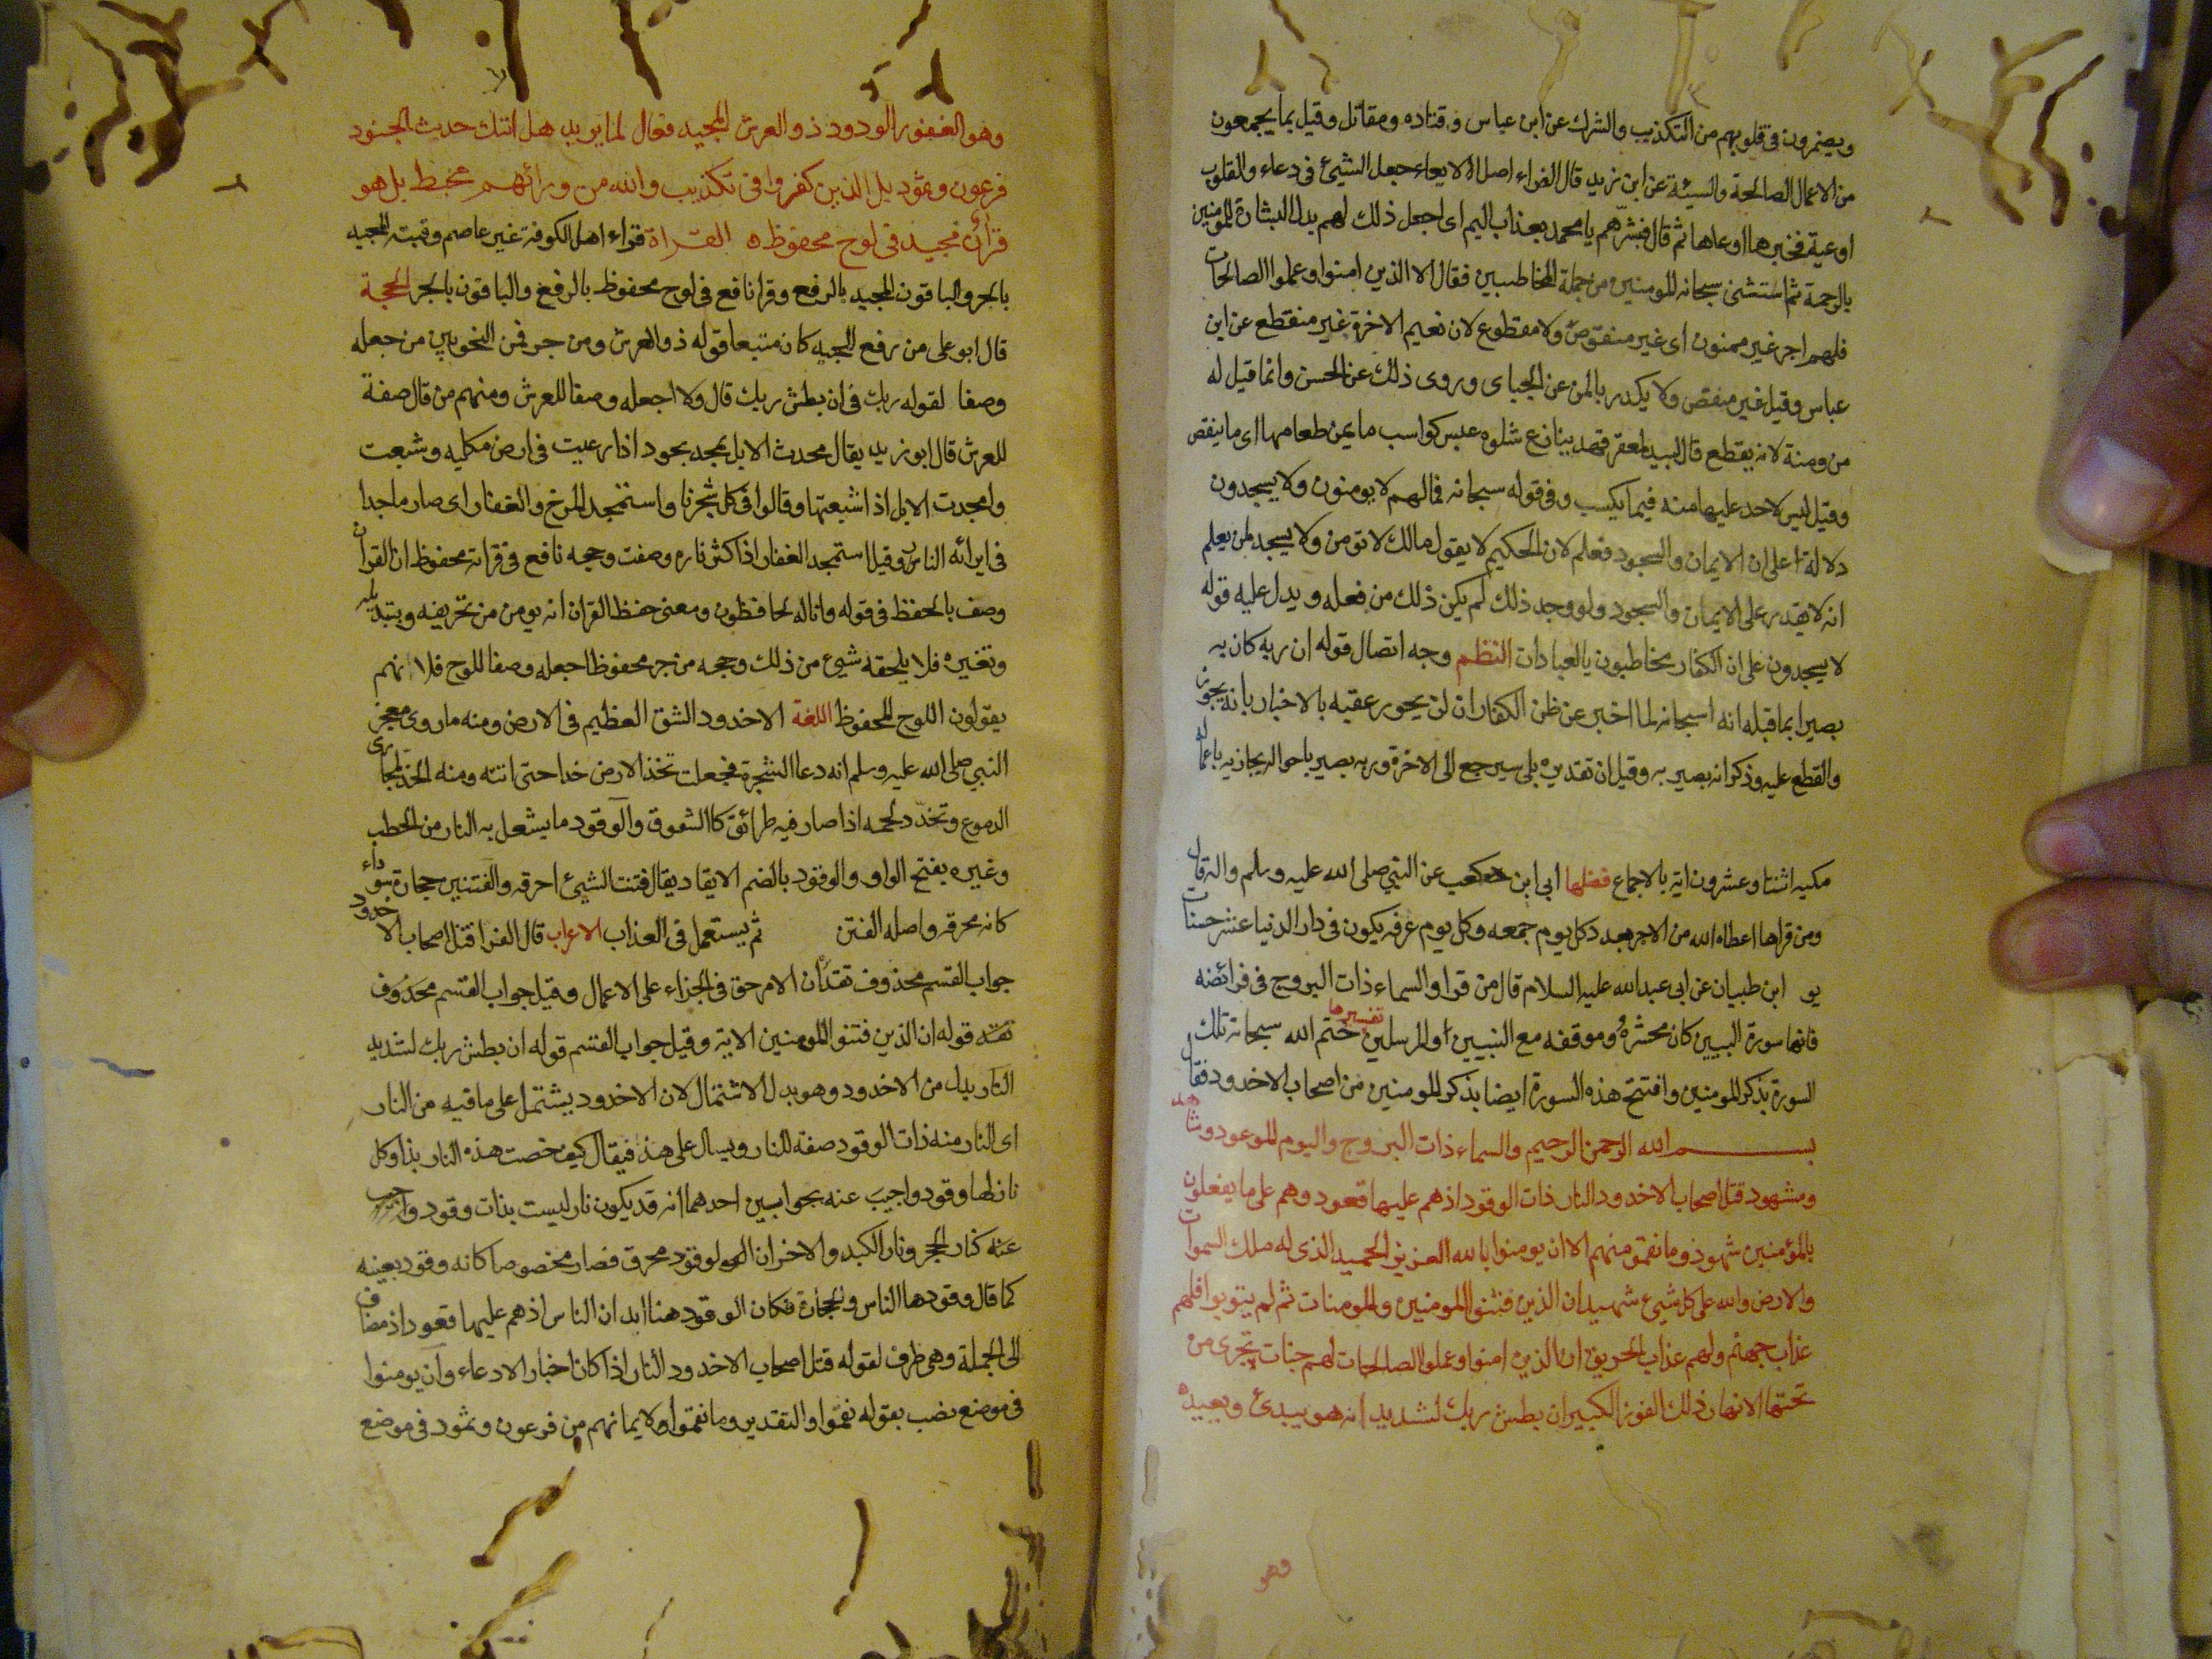 ويضمرون في قلوبهم من التكذيب والشرك عن ابن عباس وقتاده ومقاتل وقيل بما يجمعون
من الاعمال الصالحة والسيئة عن ابن زيد قال الفراء اصل الايعاء جعل الشيئ في دعاء والقلوب
اوعية فخيرها اوعاها ثم قال فبشرهم يا محمد بعذاب اليم اى اجعل ذلك لهم بدل البشارة للمؤمنين
بالرحمة ثم استثنى سبحانه المومنين من جملة المخاطبين فقال الا الذين امنوا وعملوا الصالحات
فلهم اجر غير ممنون اى غير منقوص ولا مقطوع لان نعيم الاخرة غير منقطع عن ابن
عباس وقيل غير منقص ولا يكدر بالمن عن الجباى وروى ذلك عن الحسن وانما قيل له
من ومنة لانه يقطع قال لبيد لمعفر قهد ينازع شلوه عبس كواسب ما يمن طعامها اى ما ينقص
وقيل ليس لاحد عليها منه فيما يكسب وفي قوله سبحانه فمالهم لا يومنون ولا يسجدون
دلالة على ان الايمان والسجود فعلم لان الحكيم لا يقول مالك لا تومن ولا يسجد لمن يعلم
انه لا يقدر على الايمان والسجود ولو وجد ذلك لم يكن ذلك من فعله ويدل عليه قوله
لا يسجدون على ان الكفار مخاطبون بالعبادات النظم وجه اتصال قوله ان ربه كان به
بصيرا بما قبله انه سبحانه لما اخبر عن ظن الكفار ان لن يحور عقبه بالاخبار بانه يحور
والقطع عليه وذكر انه بصير به وقيل ان تقديره بلى سيرجع الى الاخرة وربه بصير باحواله يجازيه باعماله
مكيه اثنتا وعشرون اية بالاجماع فضلها ابى ابن كعب عن النبي صلى الله عليه وسلم واله قال
ومن قراها اعطاه الله من الاجر بعدد كل يوم جمعه وكل يوم عرفه يكون في دار الدنيا عشر حسنات
يو ابن ظبيان عن ابى عبد الله عليه السلام قال من قرا والسماء ذات البروج في فرائضه
فانها سورة النبيين كان محشره وموقفه مع النبيين والمرسلين تفسيرها ختم الله سبحانه تلك
السورة بذكر المومنين وافتتح هذه السورة ايضا بذكر المومنين من اصحاب الاخدود فقال
بسم الله الرحمن الرحيم والسماء ذات البروج واليوم الموعود وشاهد
ومشهود قتل اصحاب الاخدود النار ذات الوقود اذهم عليها قعود وهم على ما يفعلون
بالمؤمنين شهود وما نقموا منهم الا ان يومنوا بالله العزيز الحميد الذى له ملك السموات
والارض والله على كل شيئ شهيد ان الذين فتنوا المومنين والمومنات ثم لم يتوبوا فلهم
عذاب جهنم ولهم عذاب الحريق ان الذين امنوا وعملوا الصالحات لهم جنات تجرى من
تحتها الانهار ذلك الفوز الكبير ان بطش ربك لشديد انه هو يبدئ ويعيد
وهو
وهو الغفور الودود ذو العرش المجيد فعال لما يريد هل اتتك حديث الجنود
فرعون وثمود بل الذين كفروا في تكذيب والله من ورائهم محيط بل هو
قرآن مجيد في لوح محفوظ القراة قراء اهل الكوفة غير عاصم وقتيبه المجيد
بالجر والباقون المجيد بالرفع وقرا نافع في لوح محفوظ بالرفع والباقون بالجر الحجة
قال ابو على من رفع المجيد كان متبعا قوله ذو العرش ومن جر فمن النحويين من جعله
وصفا لقوله ربك في ان بطش ربك قال ولا اجعله وصفا للعرش ومنهم من قال صفة
للعرش قال ابو زيد يقال مجدت الابل تمجد مجود اذا رعيت في ارض مكليه وشبعت
وامجدت الابل اذا اشبعتها وقالوا في كل شجر نار واستمجد المرخ والعفار اى صار ماجدا
في ايرائه النار وقيل استمجد العفار اذا كثر ناره وصفت وحجه نافع في قراته محفوظ ان القران
وصف بالحفظ في قوله وانا له لحافظون ومعنى حفظ القران انه يومن من تحريفه وتبديله
وتغيره فلا يلحقه شيئ من ذلك وحجه من جر محفوظا جعله وصفا للوح فلانهم
يقولون اللوح المحفوظ اللغة الاخدود الشق العظيم في الارض ومنه ما روى معجز
النبي صلى الله عليه وسلم انه دعا الشجرة فجعلت تخذ الارض خدا حتى اتته ومنه الخد لمجارى
الدموع وتخدد لحمه اذا صار فيه طرائق كالشقوق والوقود ما يشعل به النار من الحطب
وغيره بفتح الواو والوقود بالضم الايقاد يقال فتنت الشيئ احرقه والفتنين حجارة سوداء
كانه محرقه واصله الفتن ثم يستعمل في العذاب الاعراب قال الفرا قتل اصحاب الاخدود
جواب القسم محذوف تقد ان الامر حق في الجزاء على الاعمال وقيل جواب القسم محذوف
تقد قوله ان الذين فتنوا المومنين الاية وقيل جواب القسم قوله ان بطش ربك لشديد
النار بدل من الاخدود وهو بدل الاشتمال لان الاخدود يشتمل على ما فيه من النار
اى النار منه ذات الوقود صفه للنار ويسال على هذا فيقال كيف خصت هذه النار بذا وكل
نار لها وقود واجيب عنه بجوابين احدهما انه قد يكون نار ليست بذات وقود
عنه كنار الحجر ونار الكبد والاخر ان الوقود محرق فصار مخصوصا كانه وقود بعينه
كما قال وقودها الناس والحجارة فكان الوقود هنا ابدان الناس اذهم عليها قعود اذ مضاف
الى الجملة وهى ظرف لقوله قتل اصحاب الاخدود النار اذا كان اخبار الادعاء وان يومنوا
في موضع نصب بقوله نقموا والتقدير وما نقموا الا يمانهم من فرعون وثمود في موضع